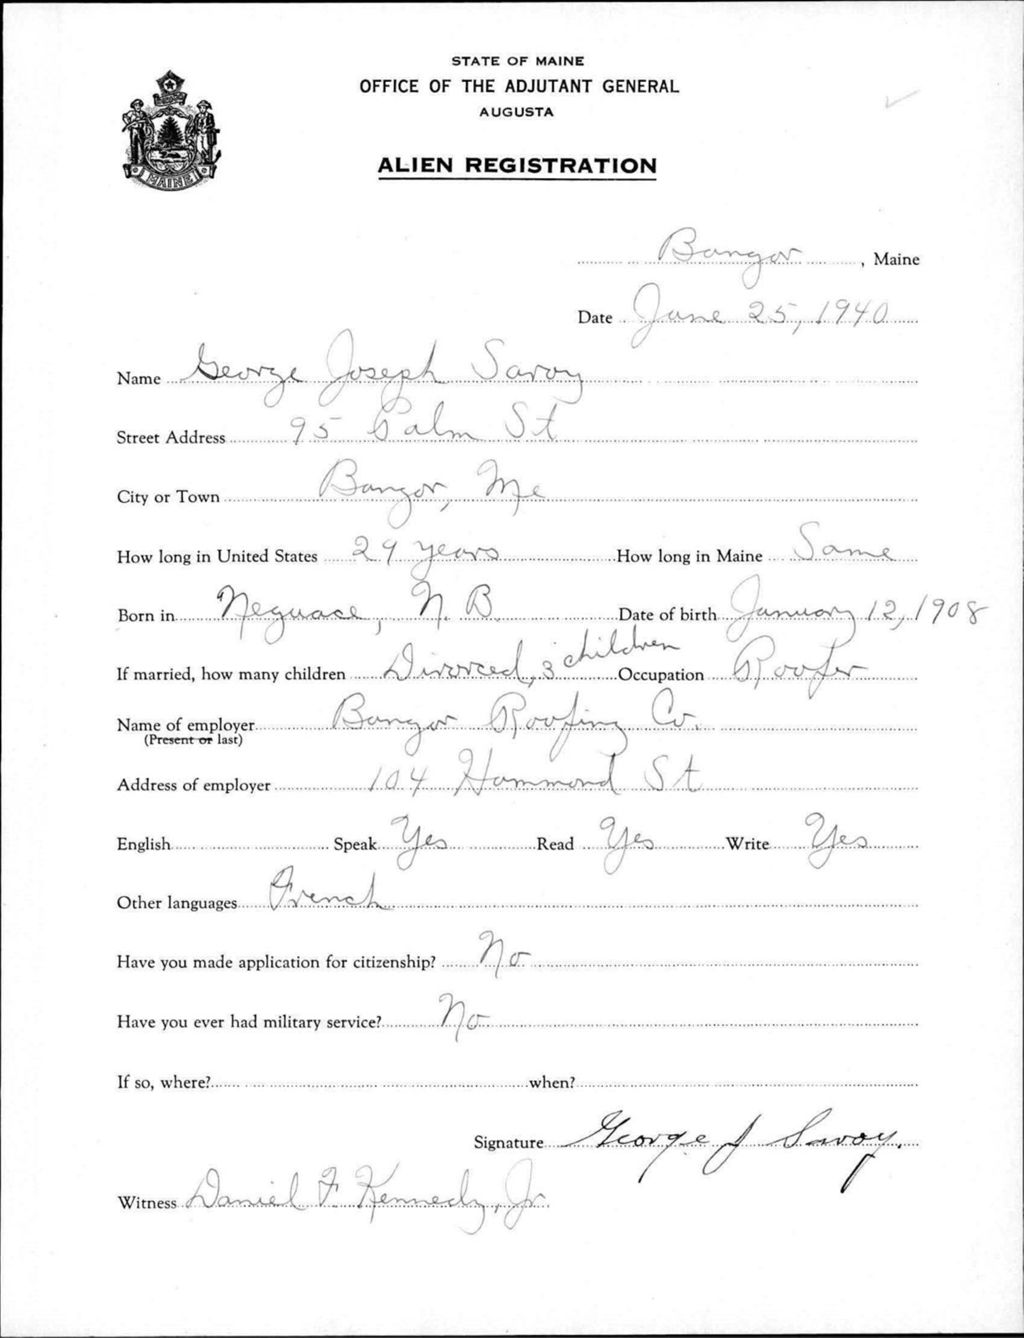 STATE OF MAINE
OFFICE OF THE ADJUTANT GENERAL
AUGUSTA
ALIEN REGISTRATION
MAINE
Bangor, Maine
Date June 25, 1940
Name George Joseph Savoy
Street Address 95 Palm St
City or Town Bangor, Me
How long in United States 29 years How long in Maine Same
Born in Neguace, N.B. Date of birth January 12, 1908
If married, how many children Divorced, 3 children Occupation Roofer
Name of employer Bangor Roofing Co.
(Present or last)
Address of employer 104 Hammond St
English Speak Yes Read Yes Write Yes
Other languages French
Have you made application for citizenship? No
Have you ever had military service? No
If so, where? when?
Signature George J Savoy.
Witness Daniel F. Kennedy, Jr.